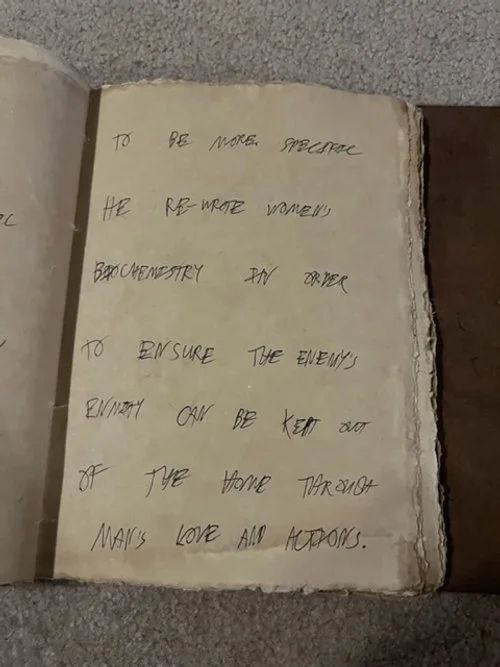 TO BE MORE SPECIFIC
HE RE-WROTE WOMEN'S
BIOCHEMISTRY IN ORDER
TO ENSURE THE ENEMY'S
ENMITY CAN BE KEPT OUT
OF THE HOME THROUGH
MAN'S LOVE AND ACTIONS.